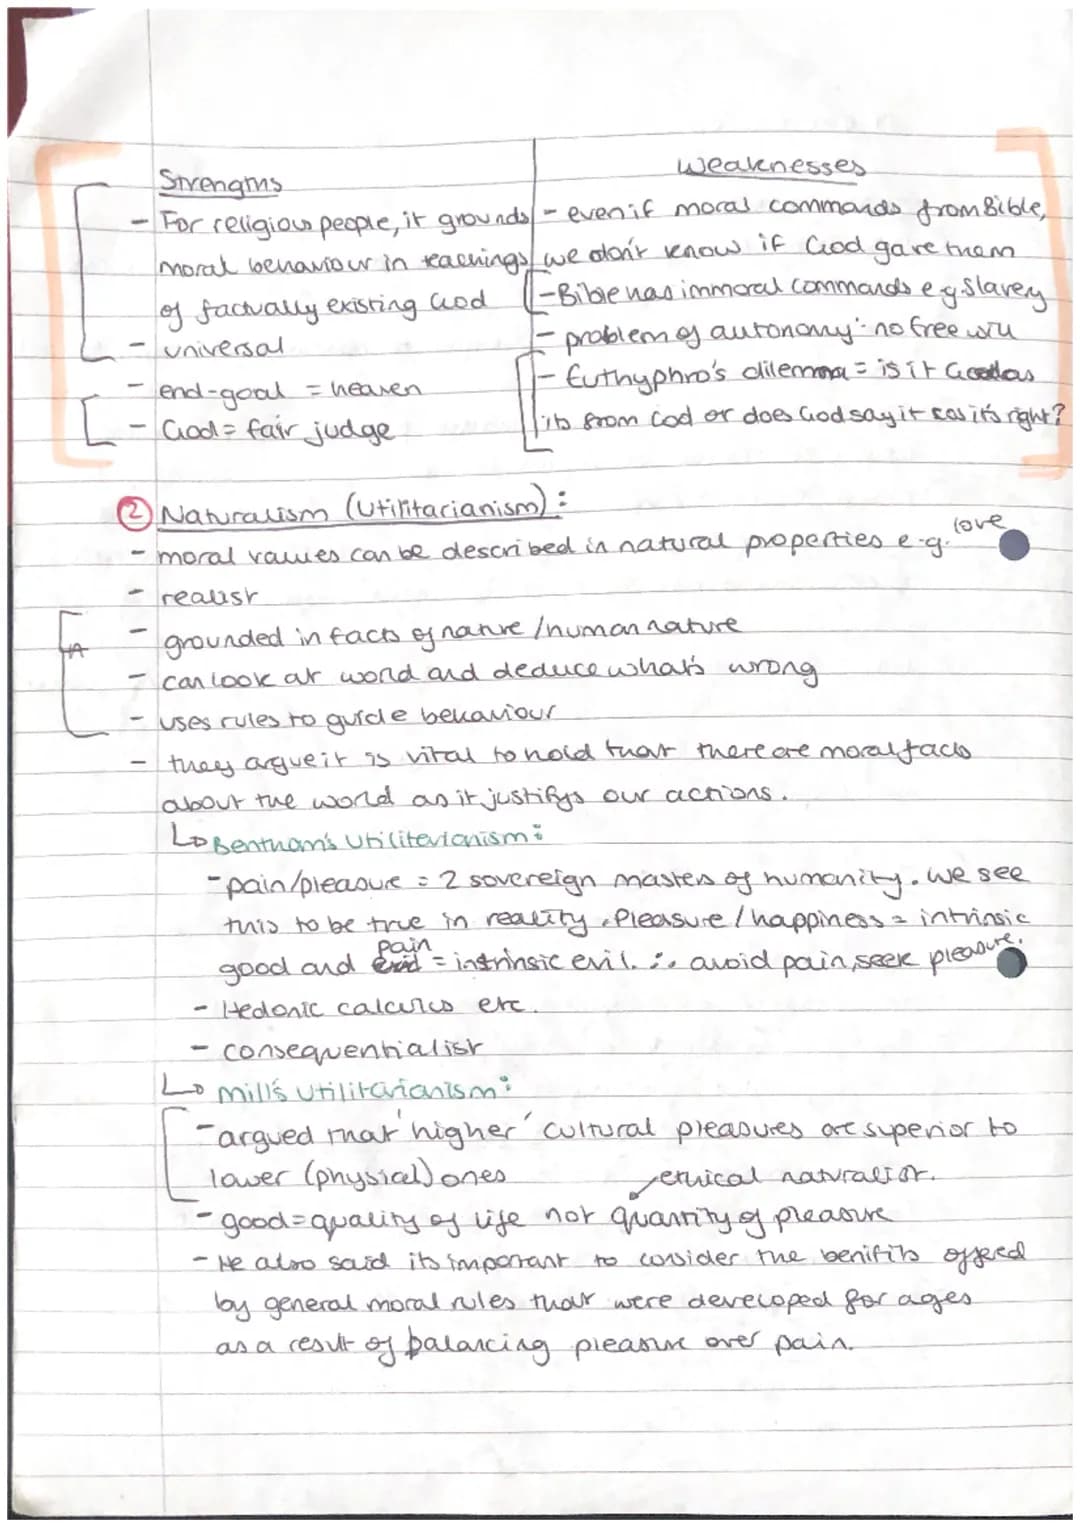 Strengths
- For religious people, it grounds
moral behaviour in teachings
of factually existing God
- universal
- end-goal = heaven
- God = fair judge
Weaknesses
- even if moral commands from Bible,
we don't know if God gave them
- Bible has immoral commands e.g slavery
- problem of autonomy: no free will
- Euthyphro's dilemma = is it Good as
its from God or does God say it cos it's right?
② Naturalism (Utilitarianism):
- moral values can be described in natural properties e.g. love
- realist
- grounded in facts of nature / human nature
- can look at world and deduce what's wrong
- uses rules to guide behaviour
- they argue it is vital to hold that there are moral facts
about the world as it justifys our actions.
↳ Bentham's Utilitarianism:
- pain/pleasure = 2 sovereign masters of humanity. We see
this to be true in reality. Pleasure / happiness = intrinsic
good and pain = intrinsic evil. ∴ avoid pain, seek pleasure.
- Hedonic calculus etc.
- consequentialist
↳ Mill's Utilitarianism:
- argued that 'higher' cultural pleasures are superior to
lower (physical) ones
ethical naturalist.
- good = quality of life not quantity of pleasure
- He also said its important to consider the benifits offered
by general moral rules that were developed for ages
as a result of balancing pleasure over pain.